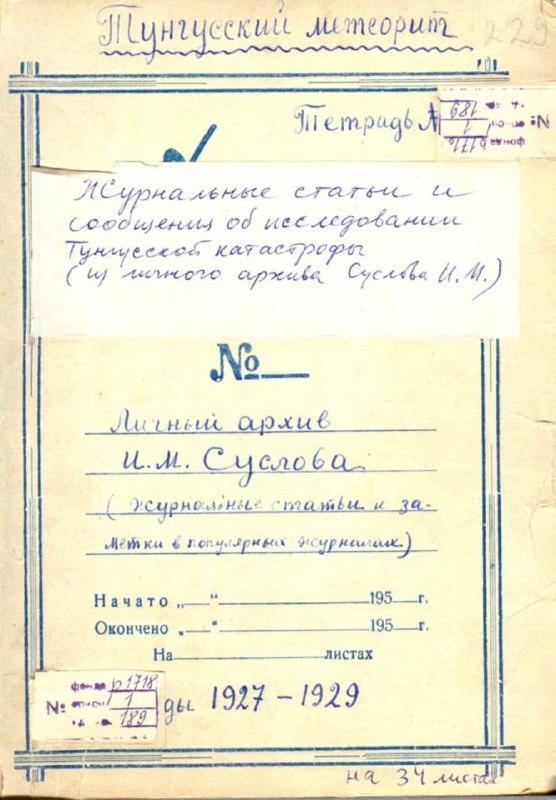 Тунгусский метеорит
229
Тетрадь №
№ фонд р1718
опись 1
ед. хр. 189
Журнальные статьи и
сообщения об исследовании
Тунгусской катастрофы
(из личного архива Суслова И.М.)
№
Личный архив
И.М. Суслова
(журнальные статьи и за-
метки в популярных журналах)
Начато „ “ 195 г.
Окончено „ “ 195 г.
На листах
№ фонда р1718
описи 1
189
ды 1927 – 1929
на 34 листах